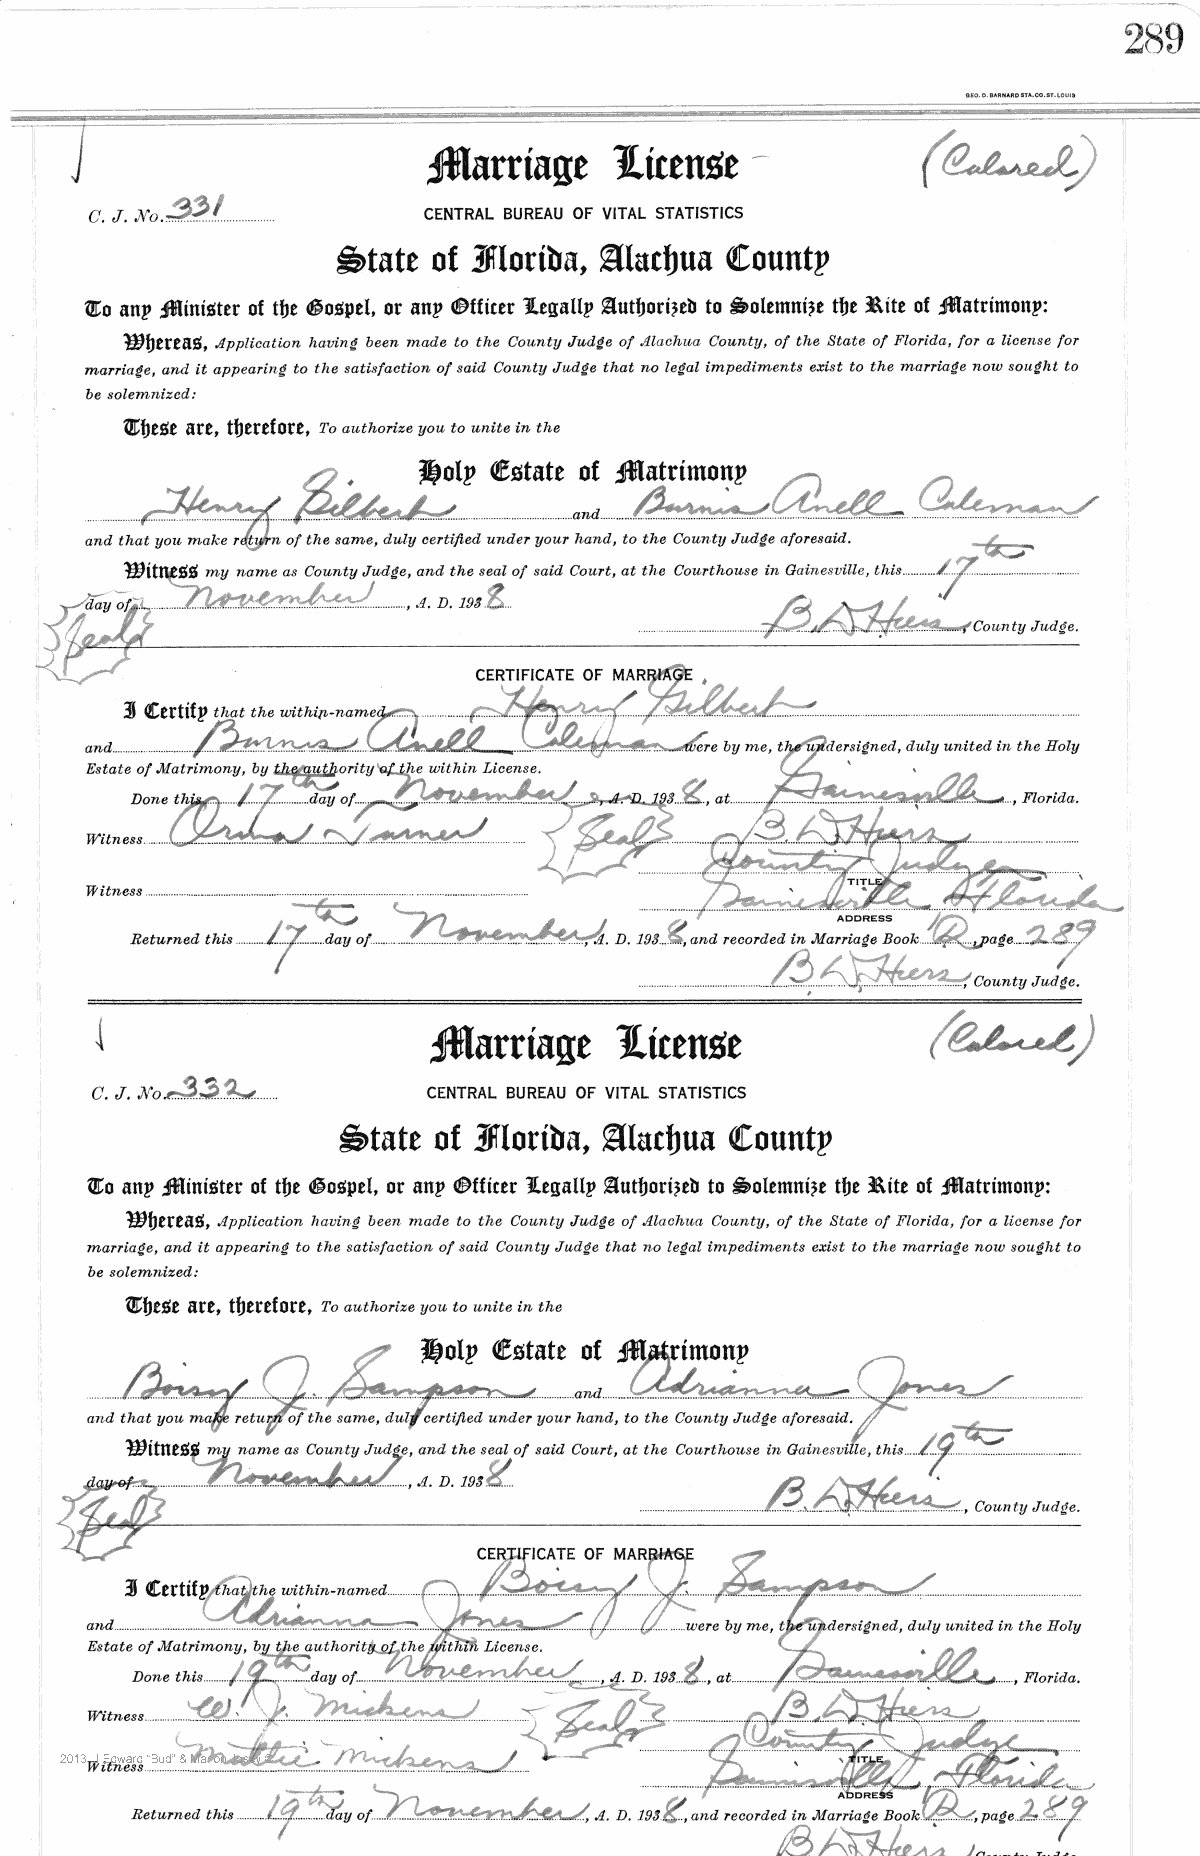 289
GEO. D. BARNARD STA. CO. ST. LOUIS
Marriage License (Colored)
C. J. No. 331 CENTRAL BUREAU OF VITAL STATISTICS
State of Florida, Alachua County
To any Minister of the Gospel, or any Officer Legally Authorized to Solemnize the Rite of Matrimony:
Whereas, Application having been made to the County Judge of Alachua County, of the State of Florida, for a license for
marriage, and it appearing to the satisfaction of said County Judge that no legal impediments exist to the marriage now sought to
be solemnized:
These are, therefore, To authorize you to unite in the
Holy Estate of Matrimony
Henry Gilbert and Burnis Anell Coleman
and that you make return of the same, duly certified under your hand, to the County Judge aforesaid.
Witness my name as County Judge, and the seal of said Court, at the Courthouse in Gainesville, this 17th
day of November, A. D. 1938
Seal B. D. Hiers, County Judge.
CERTIFICATE OF MARRIAGE
I Certify that the within-named Henry Gilbert
and Burnis Anell Coleman were by me, the undersigned, duly united in the Holy
Estate of Matrimony, by the authority of the within License.
Done this 17th day of November, A. D. 1938, at Gainesville, Florida.
Witness Orma Turner Seal B. D. Hiers
County Judge
TITLE
Witness Gainesville Florida
ADDRESS
Returned this 17th day of November, A. D. 1938, and recorded in Marriage Book R, page 289
B. D. Hiers, County Judge.
Marriage License (Colored)
C. J. No. 332 CENTRAL BUREAU OF VITAL STATISTICS
State of Florida, Alachua County
To any Minister of the Gospel, or any Officer Legally Authorized to Solemnize the Rite of Matrimony:
Whereas, Application having been made to the County Judge of Alachua County, of the State of Florida, for a license for
marriage, and it appearing to the satisfaction of said County Judge that no legal impediments exist to the marriage now sought to
be solemnized:
These are, therefore, To authorize you to unite in the
Holy Estate of Matrimony
Boisy J. Sampson and Adrianna Jones
and that you make return of the same, duly certified under your hand, to the County Judge aforesaid.
Witness my name as County Judge, and the seal of said Court, at the Courthouse in Gainesville, this 19th
day of November, A. D. 1938
Seal B. D. Hiers, County Judge.
CERTIFICATE OF MARRIAGE
I Certify that the within-named Boisy J. Sampson
and Adrianna Jones were by me, the undersigned, duly united in the Holy
Estate of Matrimony, by the authority of the within License.
Done this 19th day of November, A. D. 1938, at Gainesville, Florida.
Witness W. J. Mickens Seal B. D. Hiers
County Judge
TITLE
2013, J Edward "Bud" &
Witness Mattie Mickens Gainesville, Florida
ADDRESS
Returned this 19th day of November, A. D. 1938, and recorded in Marriage Book R, page 289
B. D. Hiers, County Judge.